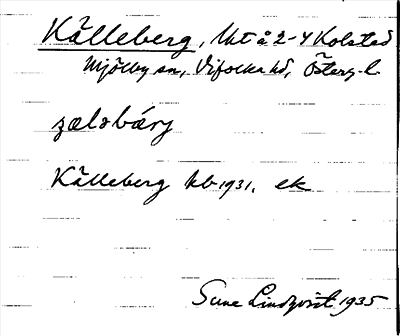 Kålleberg, lht å 2-4 Kolstad
Mjölby sn, Vifolka hd, Österg. l.
Kålleberg kb 1931. ek
Sune Lindqvist 1935